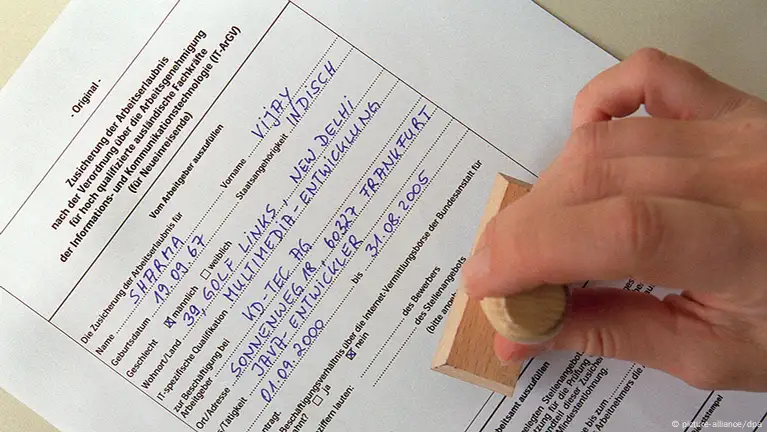 - Original -
Zusicherung der Arbeitserlaubnis
nach der Verordnung über die Arbeitsgenehmigung
für hoch qualifizierte ausländische Fachkräfte
der Informations- und Kommunikationstechnologie (IT-ArGV)
(für Neueinreisende)
Vom Arbeitgeber auszufüllen
Die Zusicherung der Arbeitserlaubnis für
Name SHARMA Vorname VIJAY
Geburtsdatum 19.09.67 Staatsangehörigkeit INDISCH
Geschlecht ☒ männlich ☐ weiblich
Wohnort/Land 39, GOLF LINKS, NEW DELHI
IT-spezifische Qualifikation MULTIMEDIA-ENTWICKLUNG
zur Beschäftigung bei
Arbeitgeber KD-TEC AG
Ort/Adresse SONNENWEG 18, 60327 FRANKFURT
/Tätigkeit JAVA-ENTWICKLER
01.09.2000 bis 31.08.2005
Beschäftigungsverhältnis über die Internet-Vermittlungsbörse der Bundesanstalt für
☐ ja ☒ nein
des Bewerbers
des Stellenangebots
(bitte
© picture-alliance/dpa